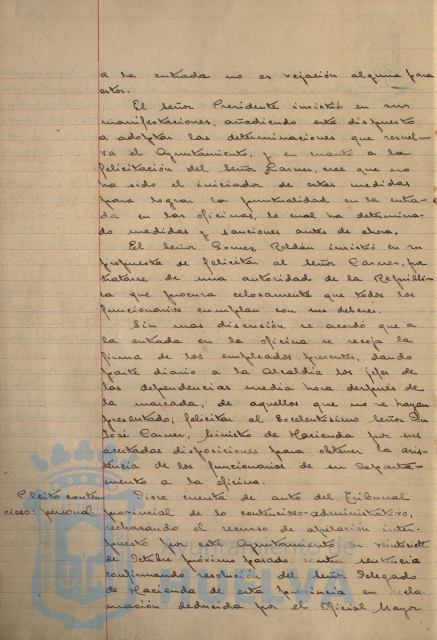 a la entrada no es vejación alguna para
estos.
El Señor Presidente insistió en sus
manifestaciones, añadiendo está dispuesto
a adoptar las determinaciones que resuel-
va el Ayuntamiento, y en cuanto a la
felicitación del Señor Carner, cree que no
ha sido el iniciador de estas medidas
para lograr la puntualidad en la entra-
da en las oficinas, lo cual ha determina-
do medidas y sanciones antes de ahora.
El Señor Gomez Roldán insistió en su
propuesta de felicitar al Señor Carner, por
tratarse de una autoridad de la Repúbli-
ca que procura celosamente que todos los
funcionarios cumplan con sus deberes.
Sin mas discusión se acordó que a
la entrada en la oficina se recoja la
firma de los empleados presentes, dando
parte diario a la Alcaldía los jefes de
las dependencias media hora después de
la marcada, de aquellos que no se hayan
presentado; felicitar al Excelentísimo Señor Don
José Carner, Ministro de Hacienda por sus
acertadas disposiciones para obtener la asis-
tencia de los funcionarios de su Departa-
mento a la oficina.
Pleito conten
cioso: personal
Diose cuenta de auto del Tribunal
provincial de lo contencioso-administrativo,
rechazando el recurso de apelación inter-
puesto por este Ayuntamiento en veintisiete
de Octubre próximo pasado contra sentencia
confirmando resolución del Señor Delegado
de Hacienda de esta provincia en recla-
mación deducida por el Oficial Mayor
Ayuntamiento de
HUELVA